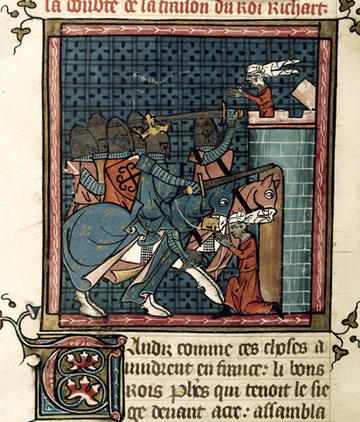 la coubte de la traison du Roi Richart.
Andiz comme ces choses a
uindrent en france: li bons
Rois phes qui tenoit le sie
ge deuant acre: assambla